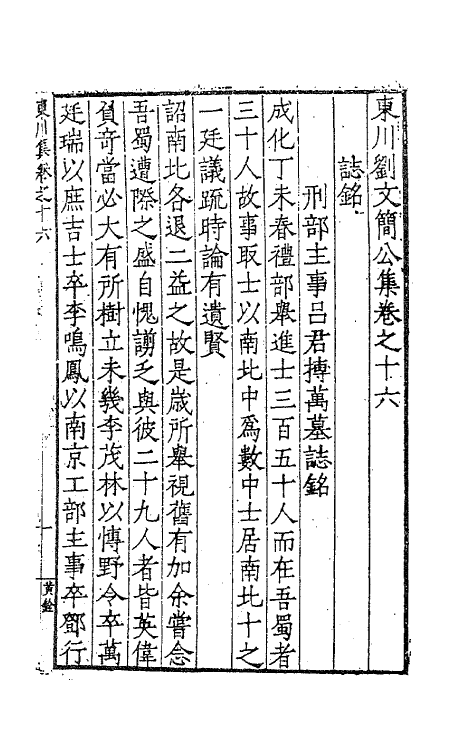 東川劉文簡公集卷之十六
誌銘
刑部主事呂君摶萬墓誌銘
成化丁未春禮部舉進士三百五十人而在吾蜀者
三十人故事取士以南北中爲數中士居南北十之
一廷議疏時論有遺賢
詔南北各退二益之故是歲所舉視舊有加余嘗念
吾蜀遭際之盛自愧謭乏與彼二十九人者皆英偉
負奇當必大有所樹立未幾李茂林以慱野令卒萬
廷瑞以庶吉士卒李鳴鳳以南京工部主事卒鄧行
東川集卷之十六
一
黃銓